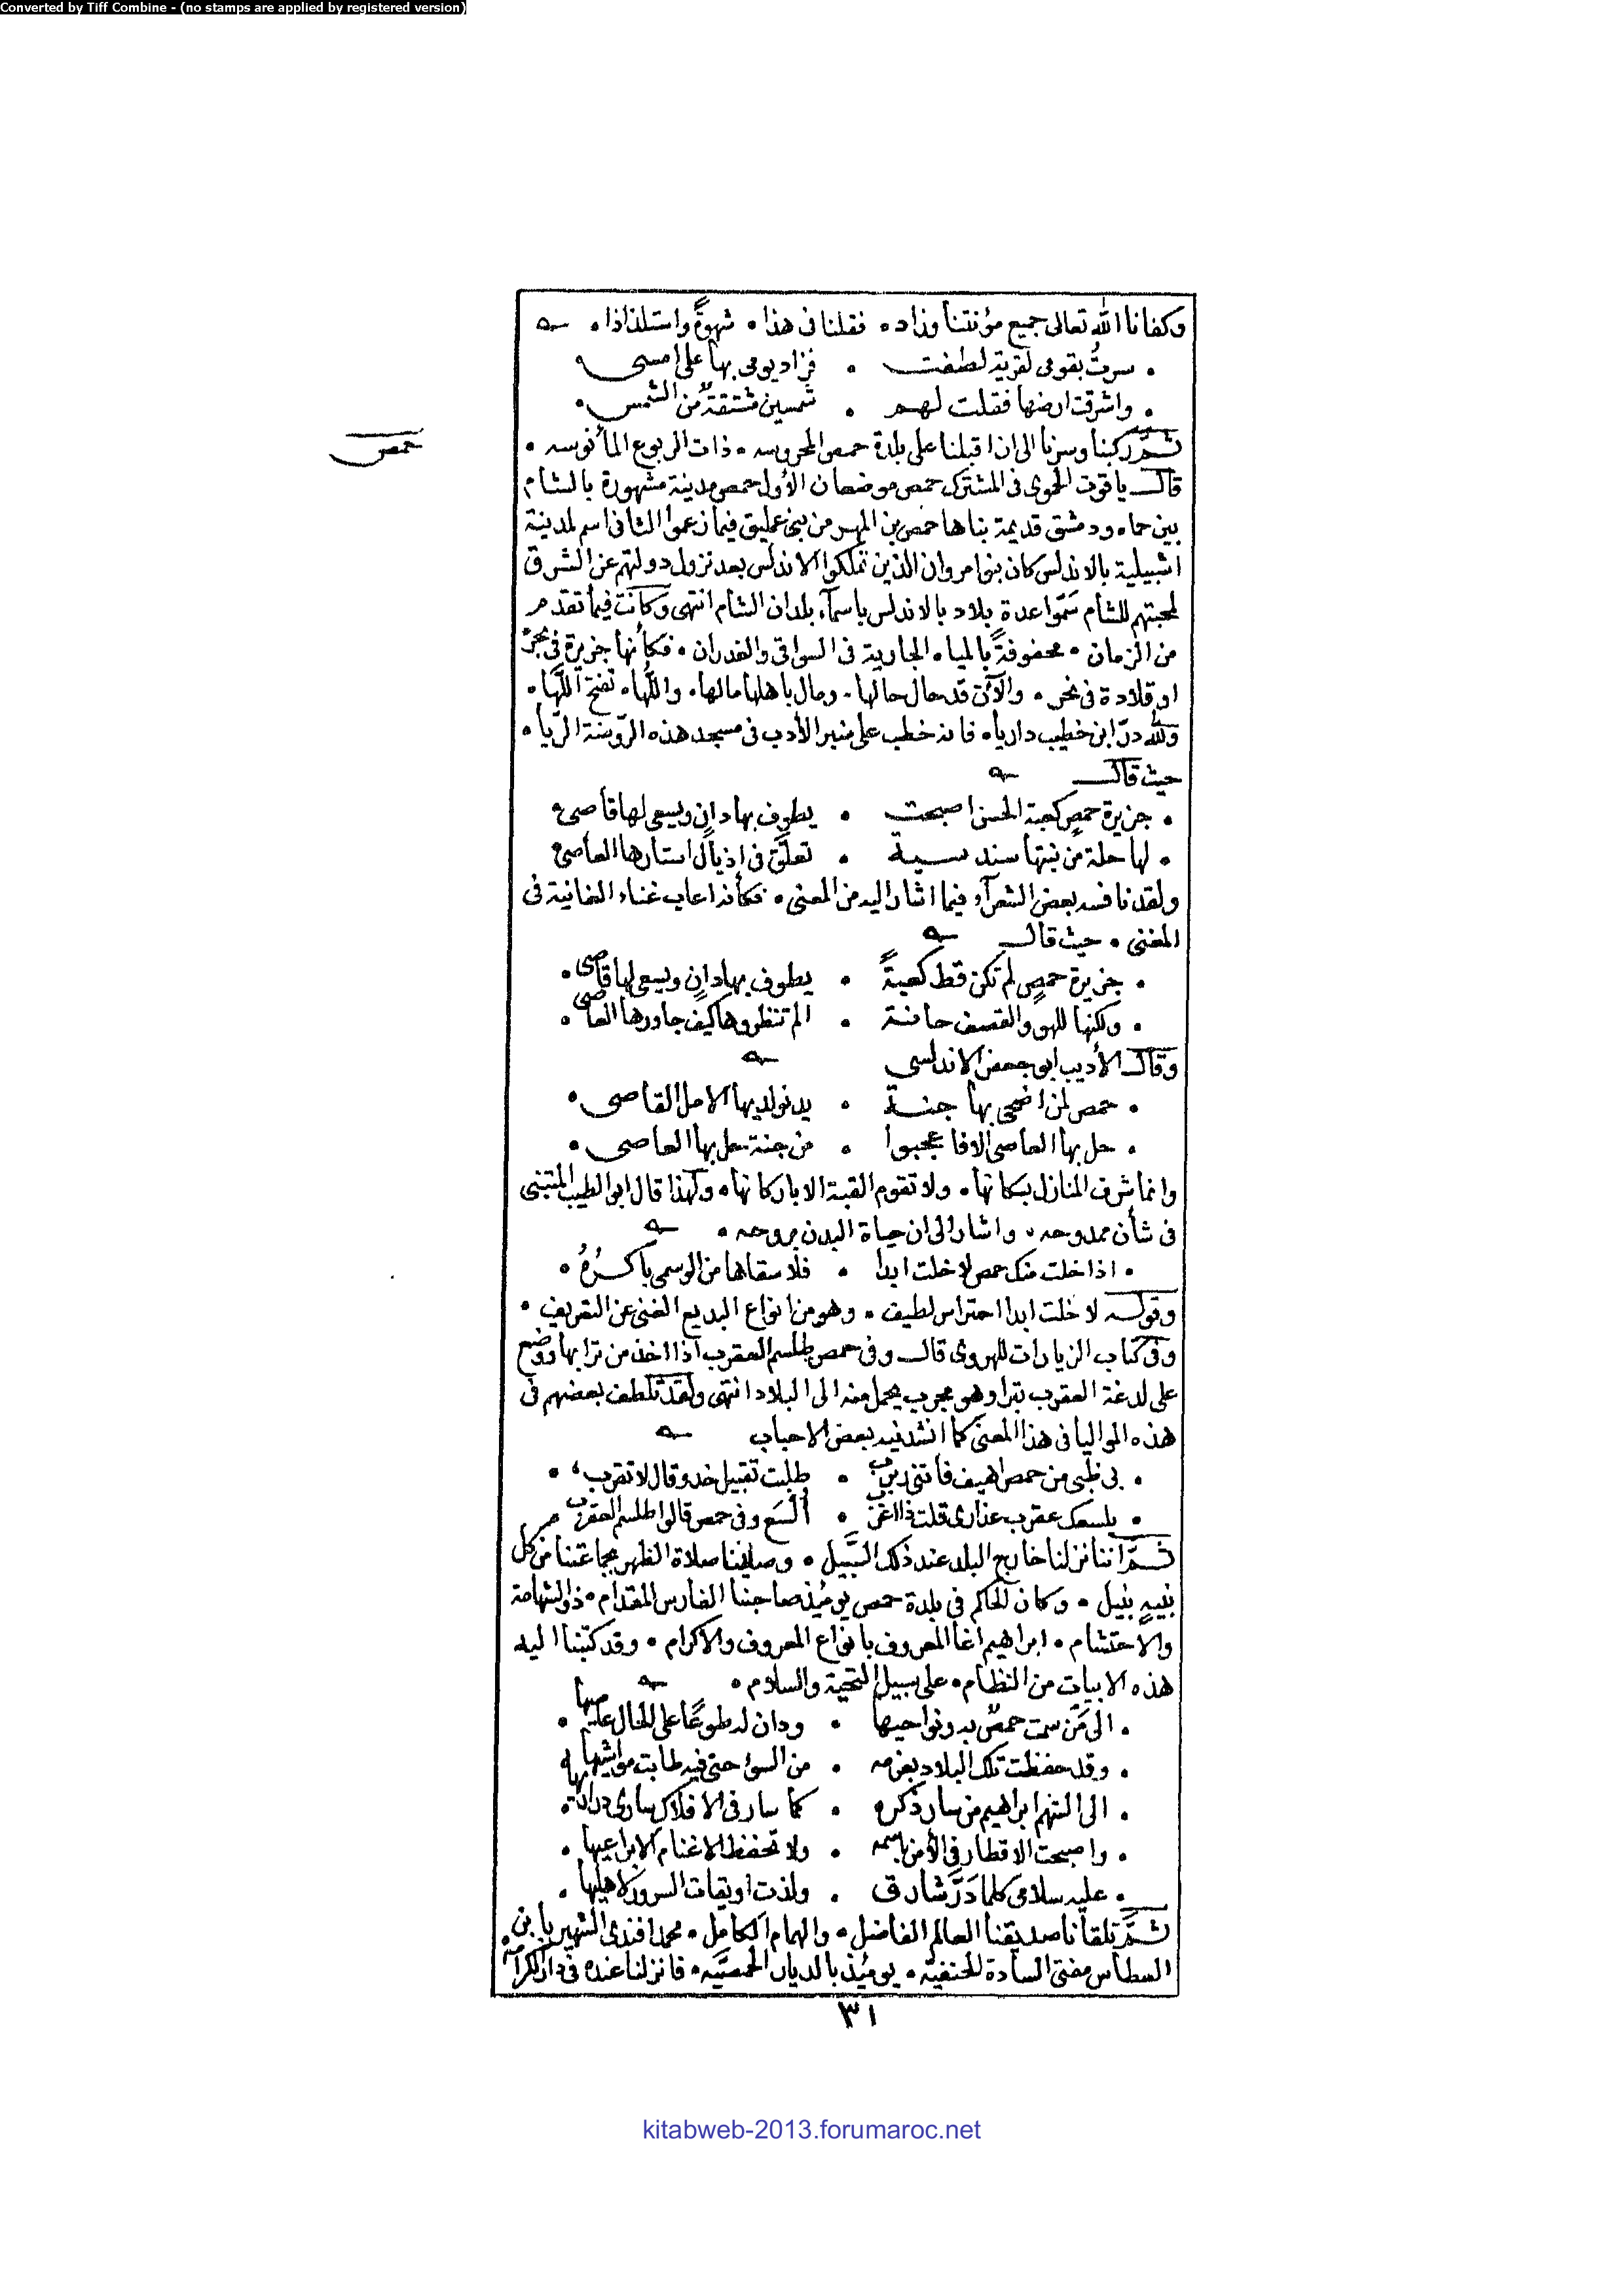 Converted by Tiff Combine - (no stamps are applied by registered version)
وكفانا الله تعالى جميع مؤنتنا وزاده • فقلنا فى هذا • شهوةً واستلذاذا •
• سرت بقومى لقرية لطفت • فزاد يومى بها على امسى
• واشرقت ارضها فقلت لهم • شمسين مشتقةٌ من الشمس •
ثم ركبنا وسرنا الى ان اقبلنا على بلدة حمص المحروسه • ذات الربوع المأنوسه •
حمص
قال ياقوت الحموى فى المشترك حمص موضعان الأول حمص مدينة مشهورة بالشام
بين حماه ودمشق قديمة بناها حمص بن المهر من بنى عمليق فيما زعموا الثانى اسم لمدينة
اشبيلية بالاندلس كان بنوا مروان الذين تملكوا الاندلس بعد نزول دولتهم عن الشرق
لمحبتهم للشأم سَمّوا عدة بلاد بالاندلس باسمآء بلدان الشام انتهى وكانت فيما تقدم
من الزمان • محفوفةً بالمياه الجارية فى السواقى والغدران • فكأنها جزيرة فى بحر
او قلادة فى نحر • والآن قد حال حالها • ومال باهلها مالها • واللُّهاه تفتح اللَّهاه
ولله درّ ابن خطيب دارياه فانه خطب على منبر الأدب فى مسجد هذه الروضة الريّا •
حيث قال
• جزيرة حمص كعبة الحسن اصبحت • يطوف بها دانٍ ويسعى لها قاصى
• لها حلة من نبتها سندسية • تعلّق فى اذيال استارها العاصى
ولقد نافسه بعض الشعرآء فيما اشار اليه من المعنى • فكأنه اعاب غناء الغانية فى
المغنى • حيث قال
• جزيرة حمصٍ لم تكن قط كعبةً • يطوف بها دانٍ ويسعى لها قاصى •
• ولكنها للهو والقصف حانة • الم تنظروها كيف جاورها العاصى •
وقال الأديب ابو جعفر الاندلسى
• حمص لمن اضحى بها جنة • يدنو لديها الامل القاصى •
• حل بها العاصى الا فاعجبوا • من جنة حل بها العاصى •
وانما شرف المنازل بسكانها • ولا تقوم القبة الا باركانها • ولهذا قال ابو الطيب المتنبى
فى شأن ممدوحه • واشار الى ان حياة البدن بروحه •
• اذا خلت منك حمص لا خلت ابدا • فلا سقاها من الوسمى باكرُهُ •
وقوله لا خلت ابدا احتراس لطيف • وهو من انواع البديع الغنى عن التعريف •
وفى كتاب الزيارات للهروى قال وفى حمص طلسم العقرب اذا اخذ من ترابها ووضع
على لدغة العقرب تبرا وهو مجرب يحمل منه الى البلاد انتهى ولقد تلطف بعضهم فى
هذه المواليا فى هذا المعنى كما انشدنيه بعض الاحباب
• بى ظبى من حمص اهيف فاتنى ربرب • طلبت تقبيل خدو قال لا تقرب •
• يلسعك عقرب عذارى قلت ذا اغرب • أُلسَع وفى حمص قالوا طلسم العقرب
ثم اننا نزلنا خارج البلد عند ذلك السَّبيل • وصلينا صلاة الظهر بجماعتنا من كل
نبيهٍ نبيل • وكان الحاكم فى بلدة حمص يومئذ صاحبنا الفارس المقدام • ذو الشهامة
والاحتشام • ابراهيم اغا المعروف بانواع المعروف والاكرام • وقد كتبنا اليه
هذه الابيات من النظام • على سبيل التحية والسلام •
• الى مَن سمت حمصٌ به ونواحيها • ودان له طوعًا على الحال عاصيها •
• وقد حفظت تلك البلاد بعزمه • من السوء حتى فيه طابت مواشيها
• الى الشهم ابراهيم من سار ذكره • كما سار فى الافلاك سارى دراريها •
• واصبحت الاقطار فى الأمن باسمه • ولا تحفظ الاغنام الا براعيها •
• عليه سلامى كلما دَرَّ شارق • ولذت اويقات السرور لاهليها •
ثم تلقانا صديقنا العالم الفاضل • والهمام الكامل • محمد افندى الشهير بابن
السطاس مفتى السادة الحنفيّه • يومئذ بالديار الحمصيّه • فانزلنا عنده فى دار الكرامه
٣١
kitabweb-2013.forumaroc.net